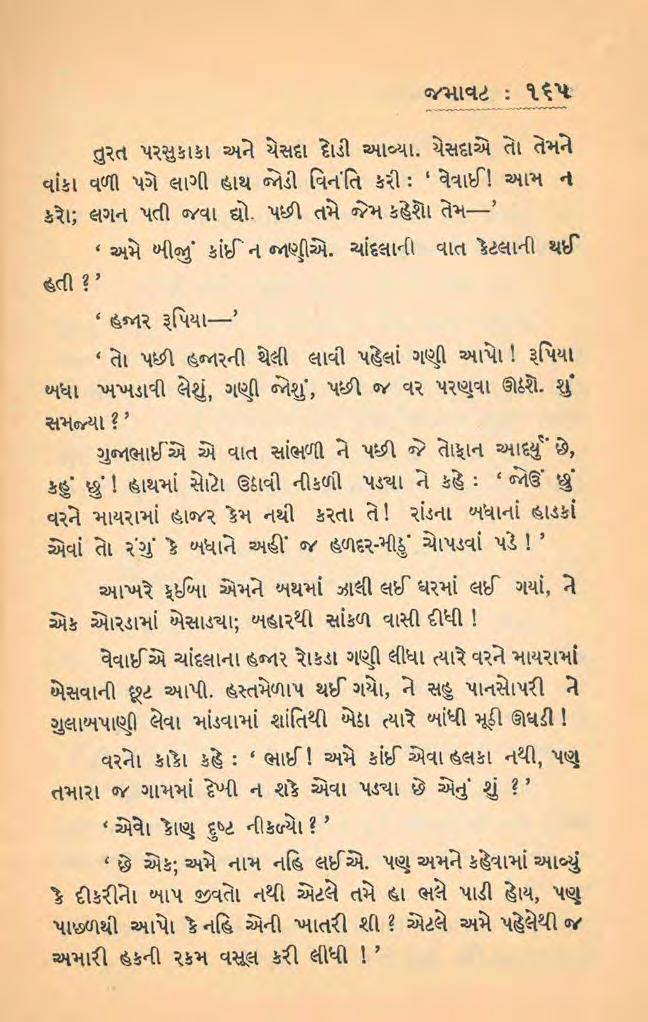 જમાવટ : ૧૬૫
તુરત પરસુકાકા અને યેસદા દોડી આવ્યા. યેસદાએ તો તેમને
વાંકા વળી પગે લાગી હાથ જોડી વિનંતિ કરી : ‘ વેવાઈ! આમ ન
કરો; લગન પતી જવા દ્યો. પછી તમે જેમ કહેશો તેમ—’
‘ અમે બીજું કાંઈ ન જાણીએ. ચાંદલાની વાત કેટલાની થઈ
હતી ? ’
‘ હજાર રૂપિયા—’
‘ તો પછી હજારની થેલી લાવી પહેલાં ગણી આપો ! રૂપિયા
બધા ખખડાવી લેશું, ગણી જોશું, પછી જ વર પરણવા ઊઠશે. શું
સમજ્યા ? ’
ગુજાભાઈએ એ વાત સાંભળી ને પછી જે તોફાન આદર્યું છે,
કહું છું ! હાથમાં સોટો ઉઠાવી નીકળી પડ્યા ને કહે : ‘ જોઉં છું
વરને માયરામાં હાજર કેમ નથી કરતા તે! રાંડના બધાનાં હાડકાં
એવાં તો રંગું કે બધાને અહીં જ હળદર-મીઠું ચોપડવાં પડે ! ’
આખરે ફઈબા એમને બથમાં ઝાલી લઈ ઘરમાં લઈ ગયાં, ને
એક ઓરડામાં બેસાડ્યા; બહારથી સાંકળ વાસી દીધી !
વેવાઈએ ચાંદલાના હજાર રોકડા ગણી લીધા ત્યારે વરને માયરામાં
બેસવાની છૂટ આપી. હસ્તમેળાપ થઈ ગયો, ને સહુ પાનસોપરી ને
ગુલાબપાણી લેવા માંડવામાં શાંતિથી બેઠા ત્યારે બાંધી મૂઠી ઊઘડી !
વરનો કાકો કહે : ‘ ભાઈ! અમે કાંઈ એવા હલકા નથી, પણ
તમારા જ ગામમાં દેખી ન શકે એવા પડ્યા છે એનું શું ? ’
‘ એવો કોણ દુષ્ટ નીકળ્યો ? ’
‘ છે એક; અમે નામ નહિ લઈએ. પણ અમને કહેવામાં આવ્યું
કે દીકરીનો બાપ જીવતો નથી એટલે તમે હા ભલે પાડી હોય, પણ
પાછળથી આપો કે નહિ એની ખાતરી શી ? એટલે અમે પહેલેથી જ
અમારી હકની રકમ વસૂલ કરી લીધી ! ’